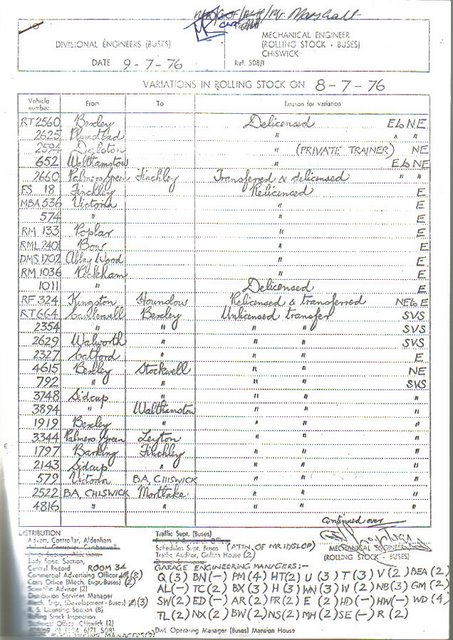 Marshall
DIVISIONAL ENGINEERS (BUSES)
MECHANICAL ENGINEER
(ROLLING STOCK - BUSES)
CHISWICK
DATE 9-7-76
Ref. 508/1
VARIATIONS IN ROLLING STOCK ON 8-7-76
Vehicle number From To Reason for variation
RT2560 Bexley Delicensed E to NE
2625 Plumstead " " "
2594 Dalston " (PRIVATE TRAINER) NE
652 Walthamstow " E to NE
2660 Palmers Green Finchley Transferred & delicensed " "
FS 18 Finchley Relicensed E
MBA 536 Victoria " E
574 " " E
RM 133 Poplar " E
RML 240 Bow " E
DMS 1702 Abbey Wood " E
RM 1036 Peckham " E
1011 " Delicensed E
RF 324 Kingston Hounslow Relicensed & transferred NE to E
RT664 Camberwell Bexley Unlicensed transfer SVS
2354 " " " " SVS
2629 Walworth " " " SVS
2327 Catford " " " E
4615 Bexley Stockwell " " NE
792 " " " " SVS
3748 Sidcup " " "
3894 " Walthamstow " "
1919 Bexley " " "
3344 Palmers Green Leyton " "
1797 Barking Finchley " "
2143 Sidcup " " "
579 Victoria BA, CHISWICK " "
2522 BA, CHISWICK Mortlake " "
4816 " " " "
continued over
DISTRIBUTION
Traffic Supt. (Buses)
Schedules Supt. Buses (ATTN. OF MR INSLOP)
MECHANICAL ENGINEER
(ROLLING STOCK - BUSES)
Central Record ROOM 32
GARAGE ENGINEERING MANAGERS:-
Commercial Advertising Officer
Q(3) BN(-) PM(4) HT(2) U(3) T(3) V(2) BEA(2)
Scientific Adviser (2)
AL(-) TC(2) BX(3) H(3) WN(3) W(2) NB(3) GM(2)
Distribution Services Manager
SW(2) ED(-) AR(2) FR(2) E(2) HD(-) HW(-) WD(4)
& Licensing Section (8)
TL(2) NX(2) BW(2) NS(2) MH(2) SE(-) R(2)
Divl. Operating Manager (Buses) Mansion House